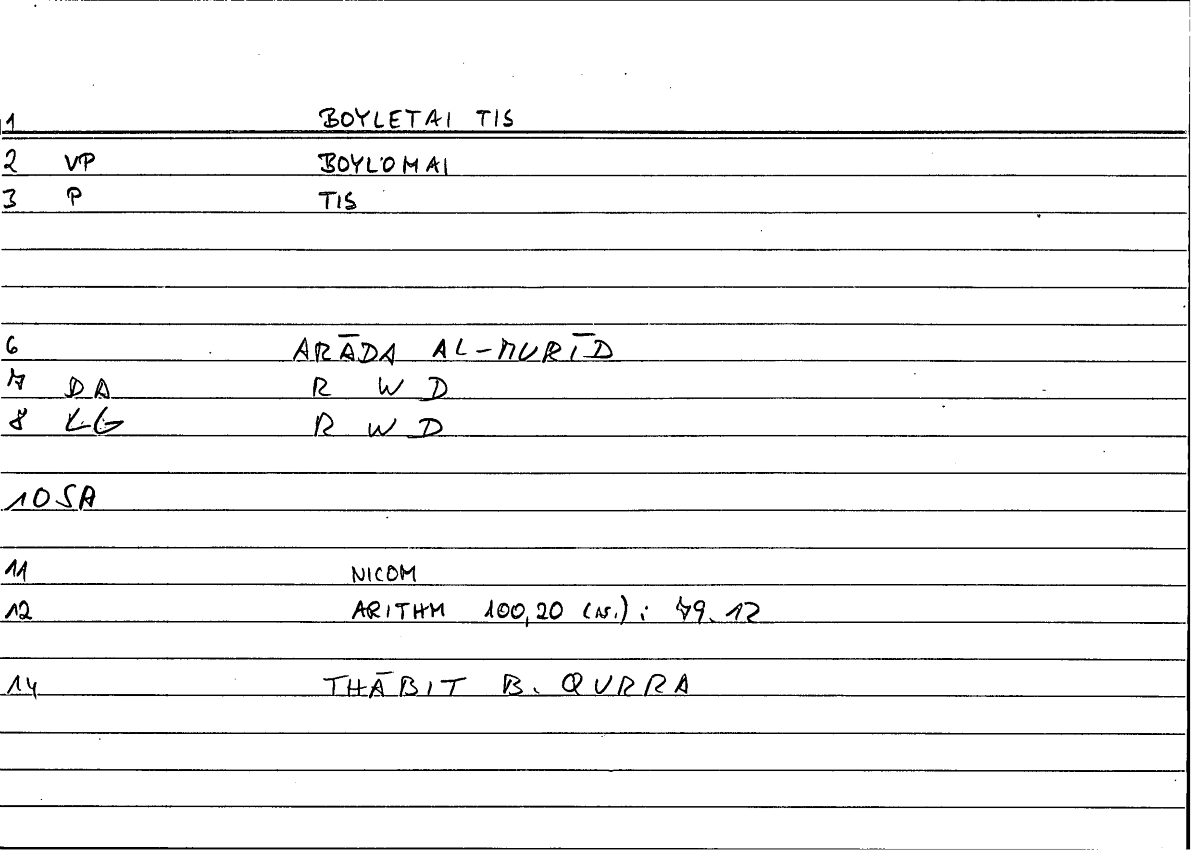 1 BOYLETAI TIS
2 VP BOYLOMAI
3 P TIS
6 ARĀDA AL-MURĪD
7 DA R W D
8 LG R W D
10 SA
11 NICOM
12 ARITHM 100,20 : 79.12
14 THĀBIT B. QURRA